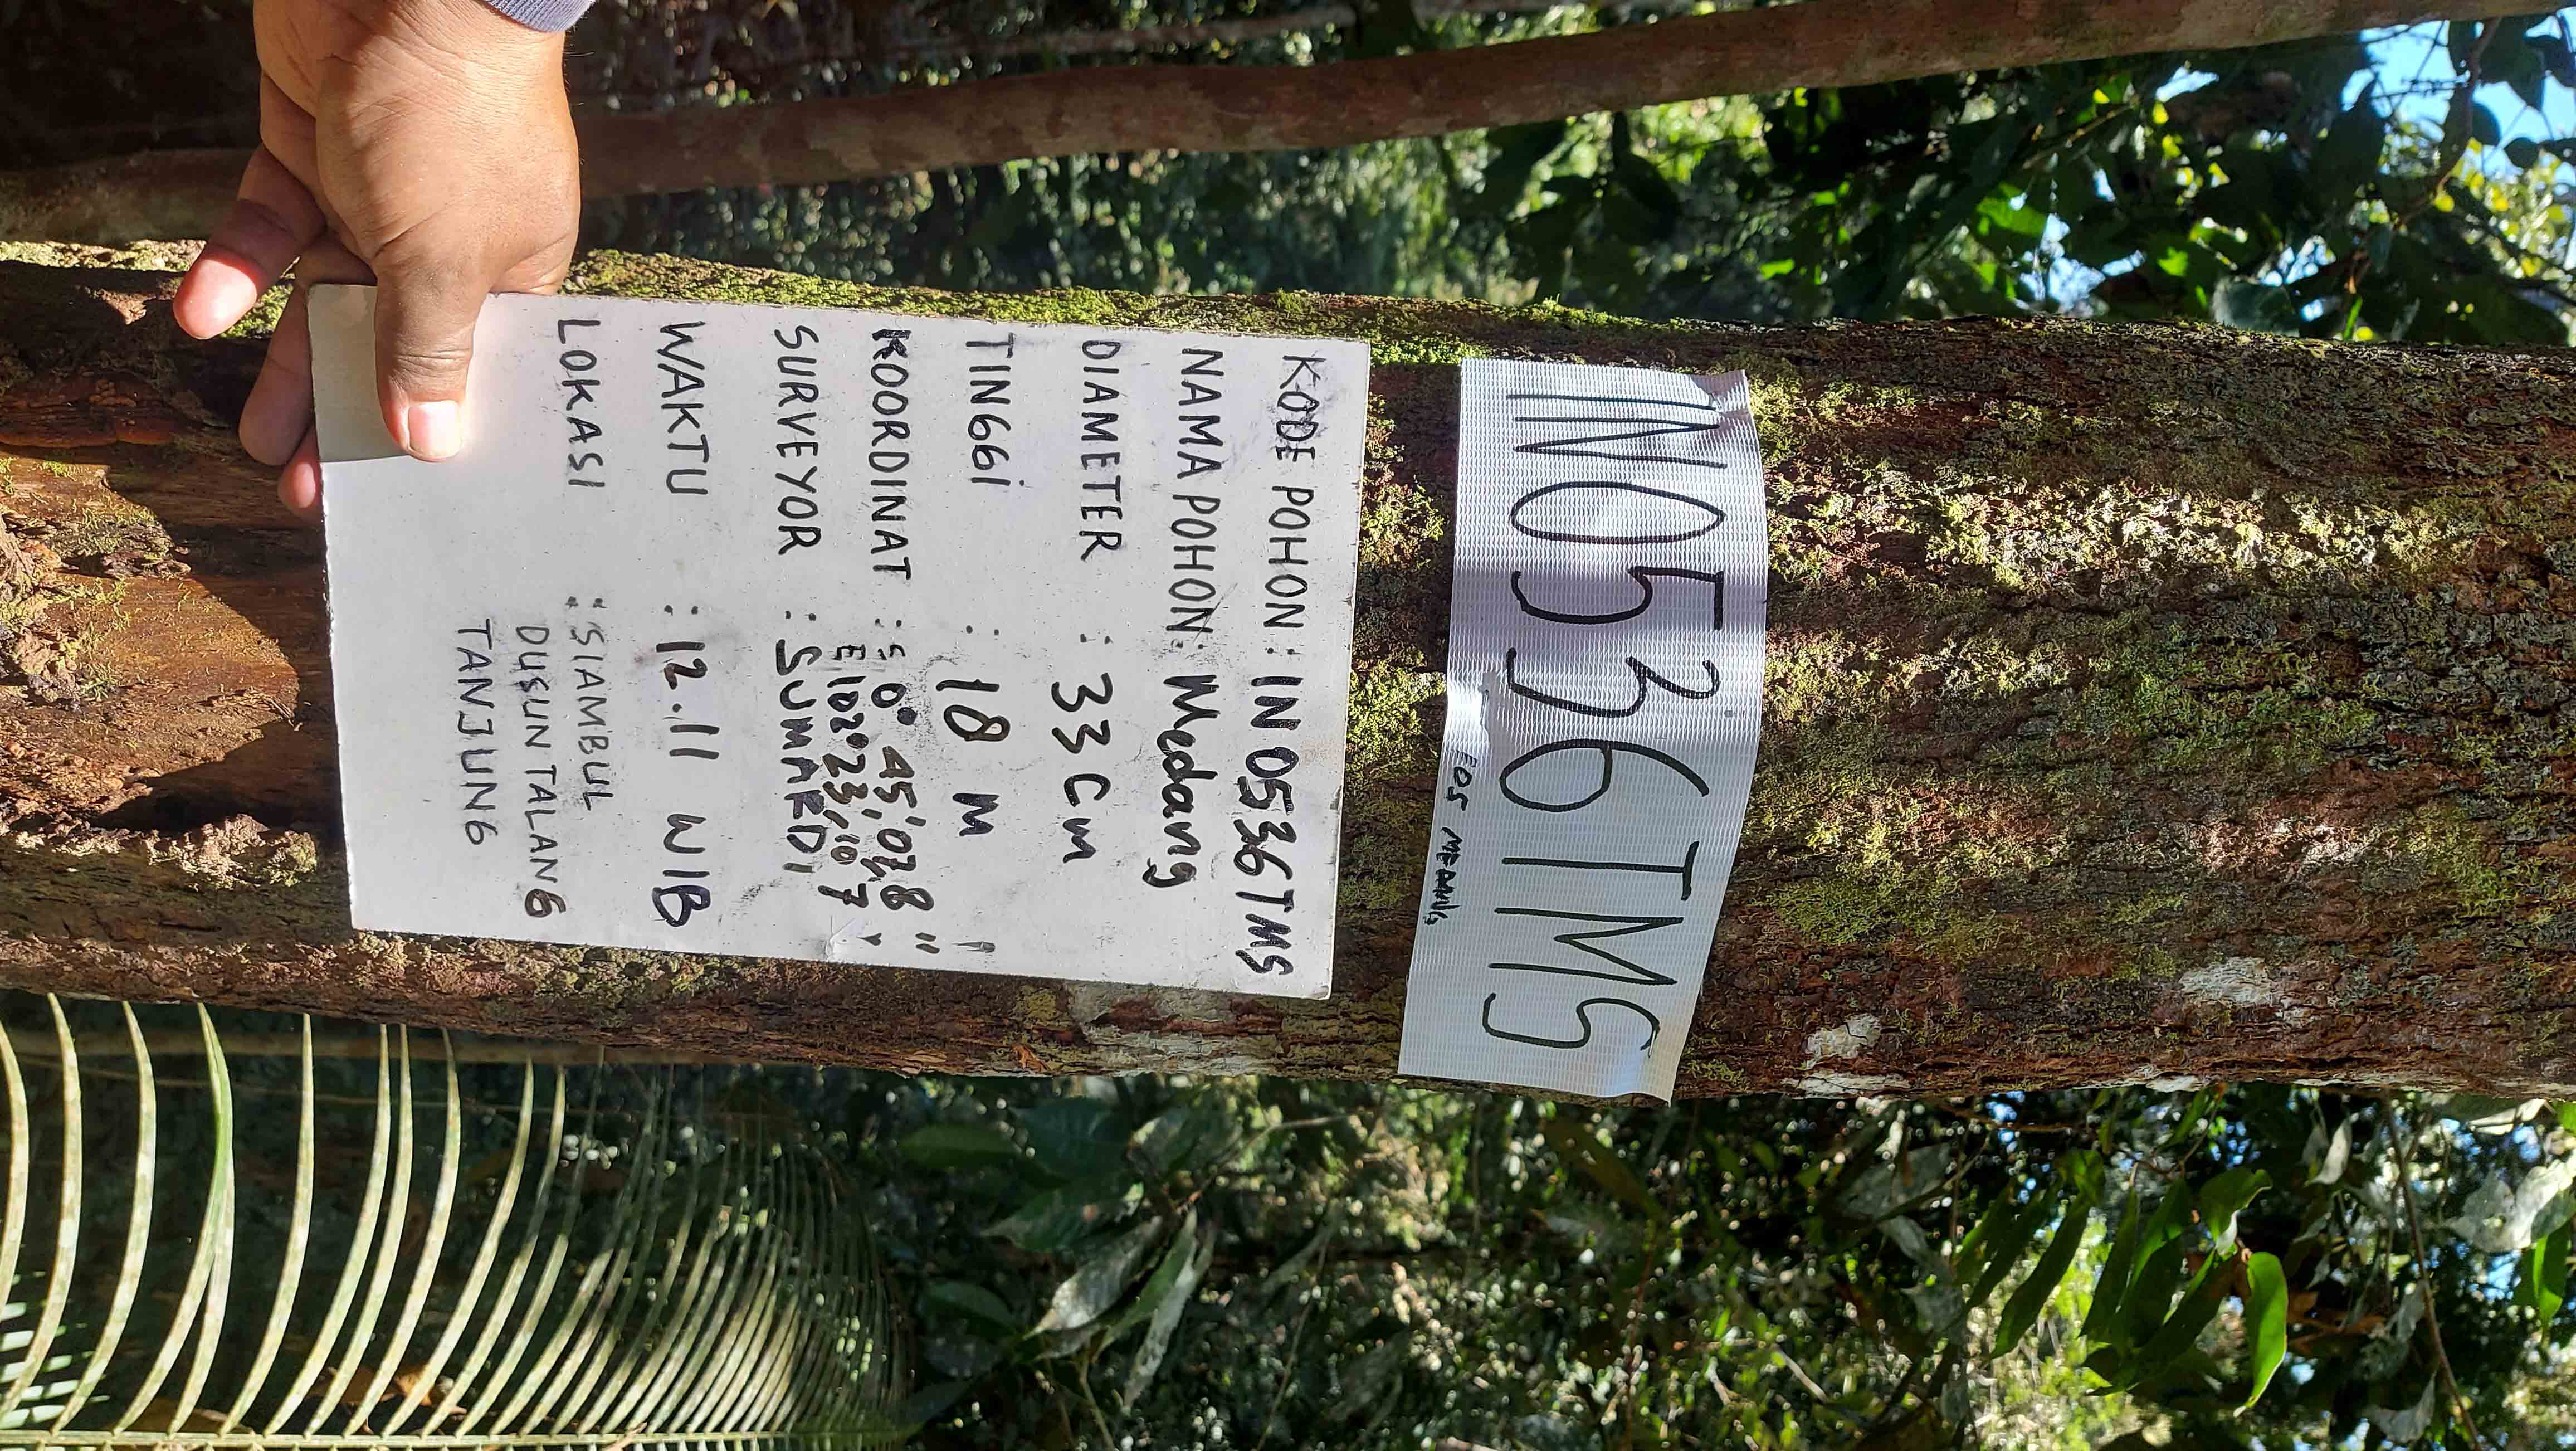 IN0536TMS
EDS MEDANG
KODE POHON : IN0536TMS
NAMA POHON: Medang
DIAMETER : 33 Cm
TINGGI : 18 M
KOORDINAT : S 0° 45' 07,8"
E 102° 23, 10 7
SURVEYOR : SUMARDI
WAKTU : 12.11 WIB
LOKASI : SIAMBUL
DUSUN TALANG
TANJUNG